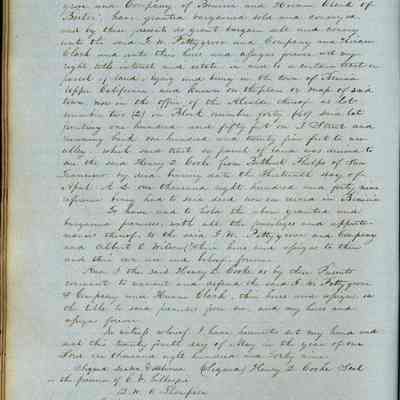 grove and Company of Benicia and Hiram Clark of
have granted bargained sold and conveyed
and by these presents do grant bargain sell and convey
unto the said F. W. Pettygrove and Company and Hiram
Clark and unto their heirs and assigns forever all my
right title interest and estate in and to a certain lot or
parcel of land lying and being in the town of Benicia
Upper California and known on the plan or map of said
town now in the office of the Alcalde thereof as lot
number two (2) in Block number forty (40) said lot
fronting one hundred and fifty feet on I Street and
running back one hundred and twenty five feet to an
alley which said tract or parcel of land was deeded to
me the said Henry D Cooke from Bethuel Phelps of San
Francisco by deed bearing date the Thirteenth day of
April A. D. one thousand eight hundred and forty nine
reference being had to said deed now on record in Benicia
To have and to hold the above granted and
bargained premises, with all the privileges and appurte-
nances thereof to the said F. W. Pettygrove and Company
and Albert O Wilcox their heirs and assigns to their
and their own use and behoof forever
And I the said Henry D Cooke do by these Presents
covenant to warrant and defend the said F. W. Pettygrove
& Company and Hiram Clark, their heirs and assigns in
the title to said premises from me and my heirs and
assigns forever
In witness whereof I have hereunto set my hand and
seal this twenty fourth day of May in the year of our
Lord one thousand eight hundred and forty nine
Signed Sealed & delivered (Signed) Henry D. Cooke Seal
in the presence of C. V. Gillespie
Thompson